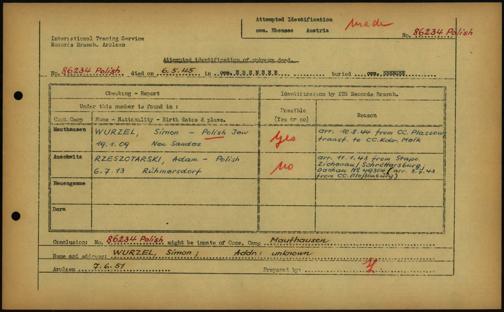 Attempted Identification
made
com. Ebensee Austria
No. 86234 Polish
International Tracing Service
Records Branch. Arolsen
Attempted identification of unknown dead.
No. 86234 Polish died on 6.5.45 in com. EBENSEE buried com. EBENSEE
Checking - Report
Identification by ITS Records Branch.
Under this number is found in:
Possible
(Yes or no)
Reason
Conc. Camp Name - Nationality - Birth dates & place.
Mauthausen WURZEL, Simon - Polish Jew
19.1.09 Neu Sandez
Yes
arr. 10.8.44 from CC. Plaszow
transf. to CC. Kdo. Melk
Auschwitz RZESZOTARSKI, Adam - Polish
6.7.13 Rühmersdorf
no
arr. 11.1.43 from Stapo
Zichenau/Schröttersburg,
from CC. Flossenbürg)
Neuengamme
Dora
Conclusion: No. 86234 Polish might be inmate of Conc. Camp Mauthausen
Name and address: WURZEL, Simon; Addr: unknown
Arolsen 7.6.51 Prepared by: